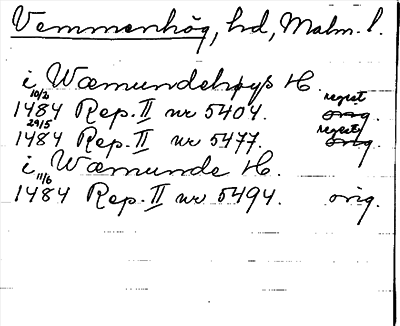 Vemmenhög, hd, Malm. l.
i Wæmundehøys H.
10/2 regest
1484 Rep. II nr 5404. orig.
29/5 regest
1484 Rep. II nr 5477. orig.
i Wæmunde H.
11/6
1484 Rep. II nr 5494. orig.